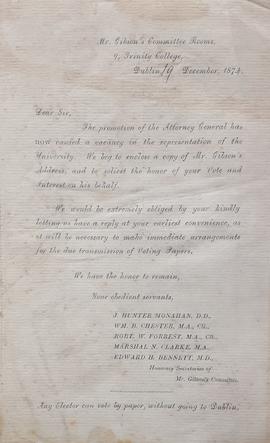 Mr. Gibson's Committee Rooms,
9, Trinity College,
Dublin, 19 December, 1874.
Dear Sir,
The promotion of the Attorney General has
now caused a vacancy in the representation of the
University. We beg to enclose a copy of Mr. Gibson's
Address, and to solicit the honor of your Vote and
Interest on his behalf.
We would be extremely obliged by your kindly
letting us have a reply at your earliest convenience, as
it will be necessary to make immediate arrangements
for the due transmission of Voting Papers.
We have the honor to remain,
Your obedient servants,
J. HUNTER MONAHAN, D.D.,
WM. B. CHESTER, M.A., CH.,
ROBT. W. FORREST, M.A., CH.,
MARSHAL N. CLARKE, M.A.,
EDWARD H. BENNETT, M.D.,
Honorary Secretaries of
Mr. Gibson's Committee.
Any Elector can vote by paper, without going to Dublin.